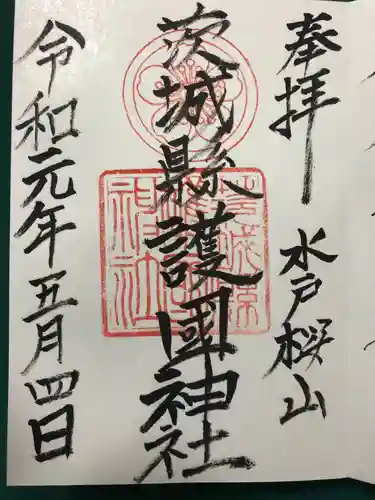 奉拝
水戸桜山
茨城縣護國神社
令和元年五月四日